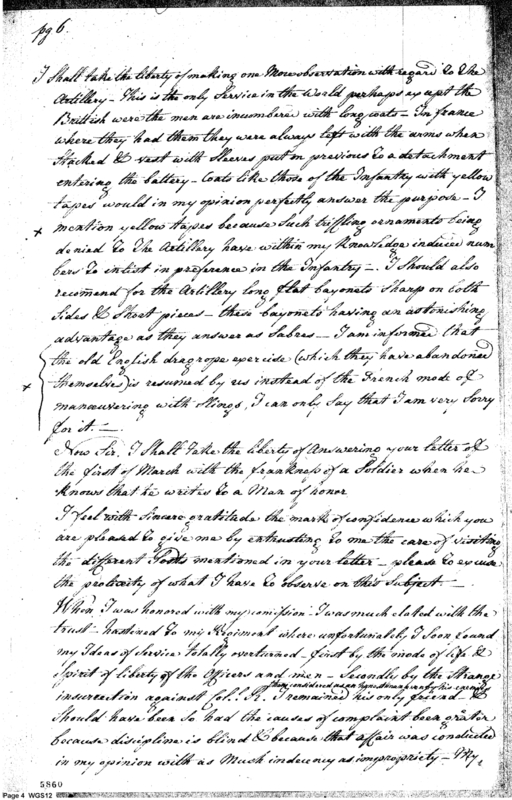 pg 6.
I Shall take the liberty of making one More observation with regard to the
Artillery - This is the only Service in the World perhaps except the
Brittish were the men are incumbered with long coats - In france
where they had them they were always left with the arms when
Stacked & vest with Sleeves put on previous to a detachment
entering the battery - Coats like those of the Infantry with yellow
tapes would in my opinion perfectly answer the purpose - I
x mention yellow tapes because Such triffling ornaments being
denied to the Artillery have within my knowledge induced num
bers to inlist in preference in the Infantry -. I Should also
recomend for the Artillery long flat bayonets Sharp on both
Sides & Short pieces - these bayonets having an astonishing
advantage as they answer as Sabres - I am informed that
the old English dragrope exercise (which they have abandoned
x themselves) is resumed by us instead of the French mode of
manoeuvering with Slings, I can only Say that I am very Sorry
for it. -
Now Sir. I Shall take the liberty of Answering your letter of
the first of March with the frankness of a Soldier when he
knows that he writes to a Man of honor
I feel with Sincere gratitude the mark of confidence which you
are pleased to give me by entrusting to me the care of visiting
the different Posts mentioned in your letter - please to excuse
the prolixity of what I have to observe on this Subject -
When I was honored with my comission I was much elated with the
trust - hastened to my Regiment where unfortunately I Soon found
my Ideas of Service totally overturned - first by the mode of life &
Spirit of liberty of the Officers and men - Secondly by the Strange
insurrection against Col. R. I remained his only friend &
Should have been So had the causes of complaint been greater
because discipline is blind & because that affair was conducted
in my opinion with as Much indecency as impropriety - My
5860
Page 4 WGS12